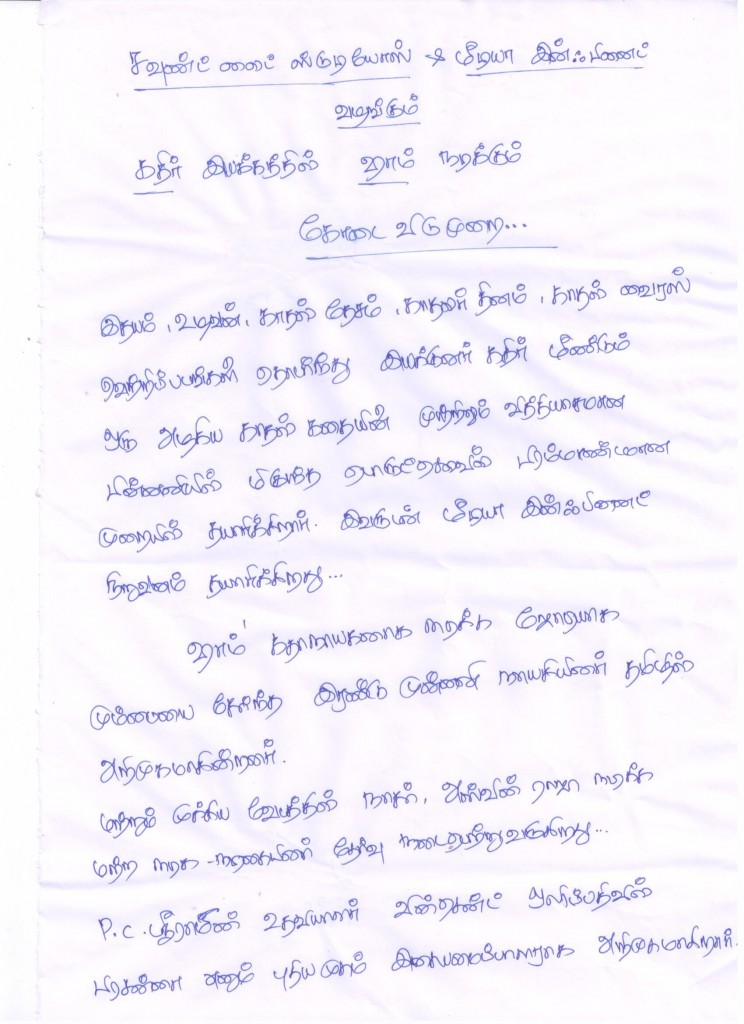 சவுண்ட் லைட் ஸ்டுடியோஸ் & மீடியா இன்ஃபினைட்
வழங்கும்
கதிர் இயக்கத்தில் ஷாம் நடிக்கும்
கோடை விடுமுறை...
இதயம், உழவன், காதல் தேசம், காதலர் தினம், காதல் வைரஸ்
வெற்றிப்படங்கள் தொடர்ந்து இயக்குனர் கதிர் மீண்டும்
ஒரு அழகிய காதல் கதையினை முற்றிலும் வித்தியாசமான
பின்னணியில் மிகுந்த பொருட்செலவில் பிரம்மாண்டமான
முறையில் தயாரிக்கிறார். இவருடன் மீடியா இன்ஃபினைட்
நிறுவனம் தயாரிக்கிறது...
ஷாம் கதாநாயகனாக நடிக்க ஜோடியாக
மும்பையை சேர்ந்த இரண்டு முன்னணி நாயகியினர் தமிழில்
அறிமுகமாகின்றனர்.
மற்றும் முக்கிய வேடத்தில் நாசர், அஸ்வின் ராஜா நடிக்க
மற்ற நடிக-நடிகையினர் தேர்வு நடைபெற்று வருகிறது...
P.C. ஸ்ரீராமின் உதவியாளர் வின்சென்ட் ஒளிப்பதிவில்
பிரசன்னா எனும் புதியமுகம் இசையமைப்பாளராக அறிமுகமாகிறார்.